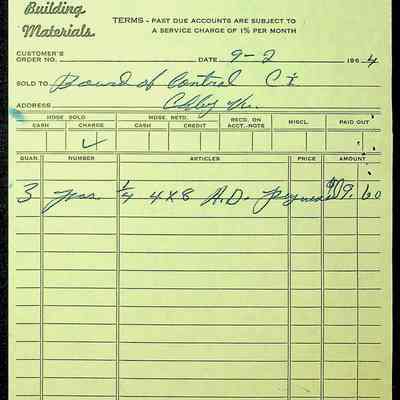 Building
Materials
TERMS - PAST DUE ACCOUNTS ARE SUBJECT TO
A SERVICE CHARGE OF 1% PER MONTH
CUSTOMER'S
ORDER NO. DATE 9-2 1964
SOLD TO Board of Control Ct.
ADDRESS
MDSE. SOLD MDSE. RETD. RECD. ON ACCT.-NOTE MISCL. PAID OUT
CASH CHARGE CASH CREDIT
✓
QUAN. NUMBER ARTICLES PRICE AMOUNT
3 pcs 1/4 4x8 A.D. 9.60